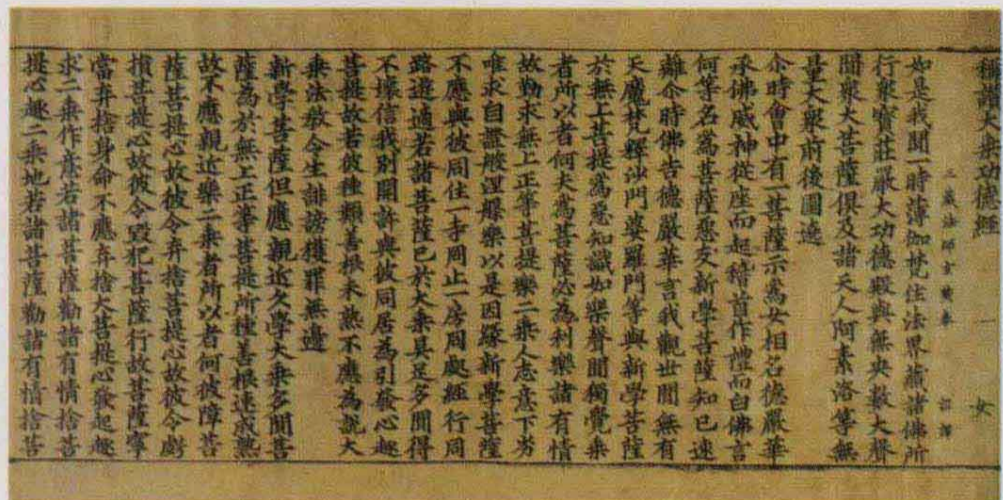 稱讚大乘功德經 一 女
三藏法師玄奘奉 詔譯
如是我聞一時薄伽梵住法界藏諸佛所
行眾寶莊嚴大功德殿與無央數大聲
聞眾大菩薩俱及諸天人阿素洛等無
量大眾前後圍遶
尒時會中有一菩薩示為女相名德嚴華
承佛威神從座而起稽首作禮而白佛言
何等名為菩薩惡友新學菩薩知已速
離尒時佛告德嚴華言我觀世間無有
天魔梵釋沙門婆羅門等與新學菩薩
於無上菩提為惡知識如樂聲聞獨覺乘
者所以者何夫為菩薩必為利樂諸有情
故勤求無上正等菩提樂二乘人志意下劣
唯求自證般涅槃樂以是因緣新學菩薩
不應與彼同住一寺同止一房同處經行同
路遊適若諸菩薩已於大乘具足多聞得
不壞信我別開許與彼同居為引發心趣
菩提故若彼種類善根未熟不應為說大
乘法教令生誹謗獲罪無邊
新學菩薩但應親近久學大乘多聞菩
薩為於無上正等菩提所種善根速成熟
故不應親近樂二乘者所以者何彼障菩
薩菩提心故彼令弃捨菩提心故彼令虧
損菩提心故彼令毀犯菩薩行故菩薩寧
當弃捨身命不應弃捨大菩提心發起趣
求二乘作意若諸菩薩勸諸有情捨菩
提心趣二乘地若諸菩薩勸諸有情捨菩